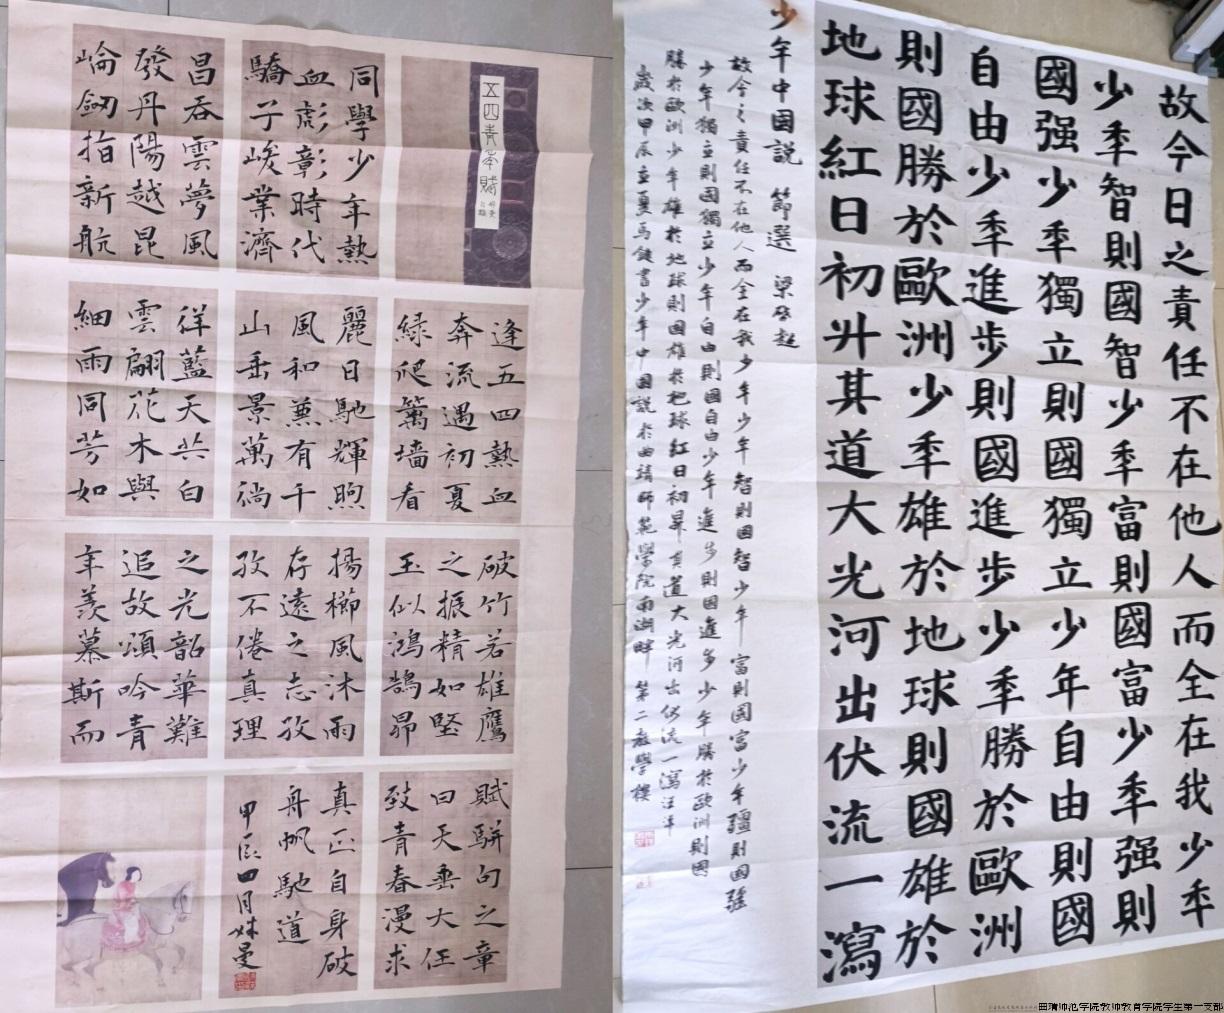 五四青年賦
同學少年熱
血彪彰時代
驕子峻業濟
昌吞雲夢風
發丹陽越昆
崘劒指新航
逢五四熱血
奔流遇初夏
綠爬籬墙看
麗日馳輝煦
風和蕙有千
山垂景萬徜
徉藍天共白
雲翩花木與
細雨同芳如
破竹若雄鷹
之振精如堅
玉似鴻鵠昂
揚櫛風沐雨
存遠之志孜
孜不倦真理
之光韶華難
追故頌吟青
年羨慕斯而
賦駢句之章
曰天垂大任
致青春漫求
真正自身破
舟帆馳道
甲辰四月姝曼
故今日之責任不在他人而全在我少年
少年智則國智少年富則國富少年强則
國强少年獨立則國獨立少年自由則國
自由少年進步則國進步少年勝於歐洲
則國勝於歐洲少年雄於地球則國雄於
地球紅日初升其道大光河出伏流一瀉
少年中国説 節選 梁啓超
故今之責任不在他人而全在我少年少年智則国智少年富則国富少年疆則国強
少年獨立則国獨立少年自由則国自由少年進步則国進步少年勝於欧洲則国
勝於欧洲少年雄於地球則国雄於地球紅日初昇其道大光河出伏流一瀉汪洋
歲次甲辰立夏馬鍵書少年中国説於曲靖師範學院南湖畔第二教學樓
曲靖师范学院教师教育学院学生第一支部